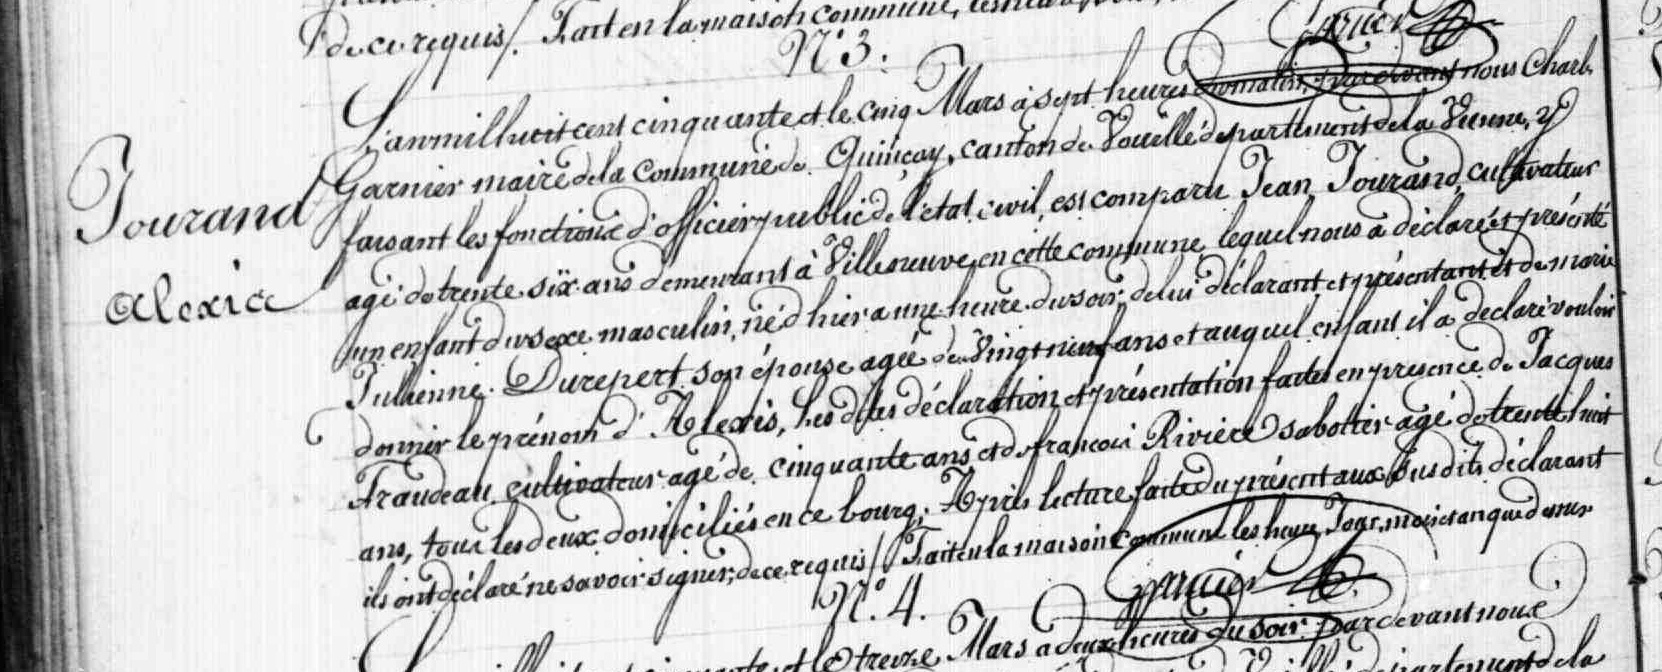 de ce requis /. Fait en la maison commune,
N° 3.
Jourand
Alexis
L'an mil huit cent cinquante et le cinq Mars à sept heures du matin, par devant nous Charl.
Garnier maire de la commune de Quinçay, canton de Vouillé département de la Vienne, y
faisant les fonctions d'officier public de l'état civil, est comparu Jean Jourand, cultivateur
agé de trente six ans demeurant à Villeneuve en cette commune, lequel nous a déclaré et présenté
un enfant du sexe masculin, né d'hier a une heure du soir, de lui déclarant et présentant et de marie
Jullienne Durepert son épouse agée de vingt neuf ans et auquel enfant il a déclaré vouloir
donner le prénom d'Alexis, Les dites déclaration et présentation faites en présence de Jacques
Fraudeau cultivateur agé de cinquante ans et de françois Rivière sabotier agé de trente huit
ans, tous les deux domiciliés en ce bourg. Après lecture faite du présent aux susdits déclarant
ils ont déclaré ne savoir signer, de ce requis / Fait en la maison commune les heure, Jour, mois et an que dessus
Garnier
N° 4.
et le treize Mars a deux heures du soir par devant nous
département de la